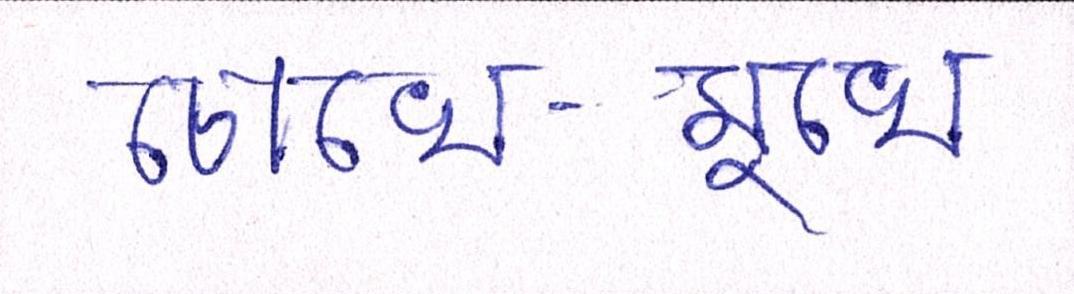 চোখে-মূখে